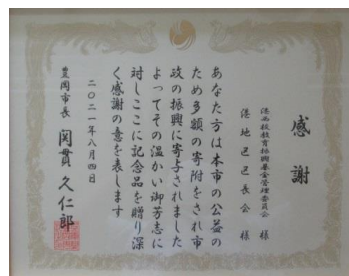 感謝
港西校教育振興基金管理委員会 様
港地区区長会 様
あなた方は本市の公益の
ため多額の寄附をされ市
政の振興に寄与されました
よってその温かい御芳志に
対しここに記念品を贈り深
く感謝の意を表します
二〇二一年八月四日
豊岡市長 関貫久仁郎